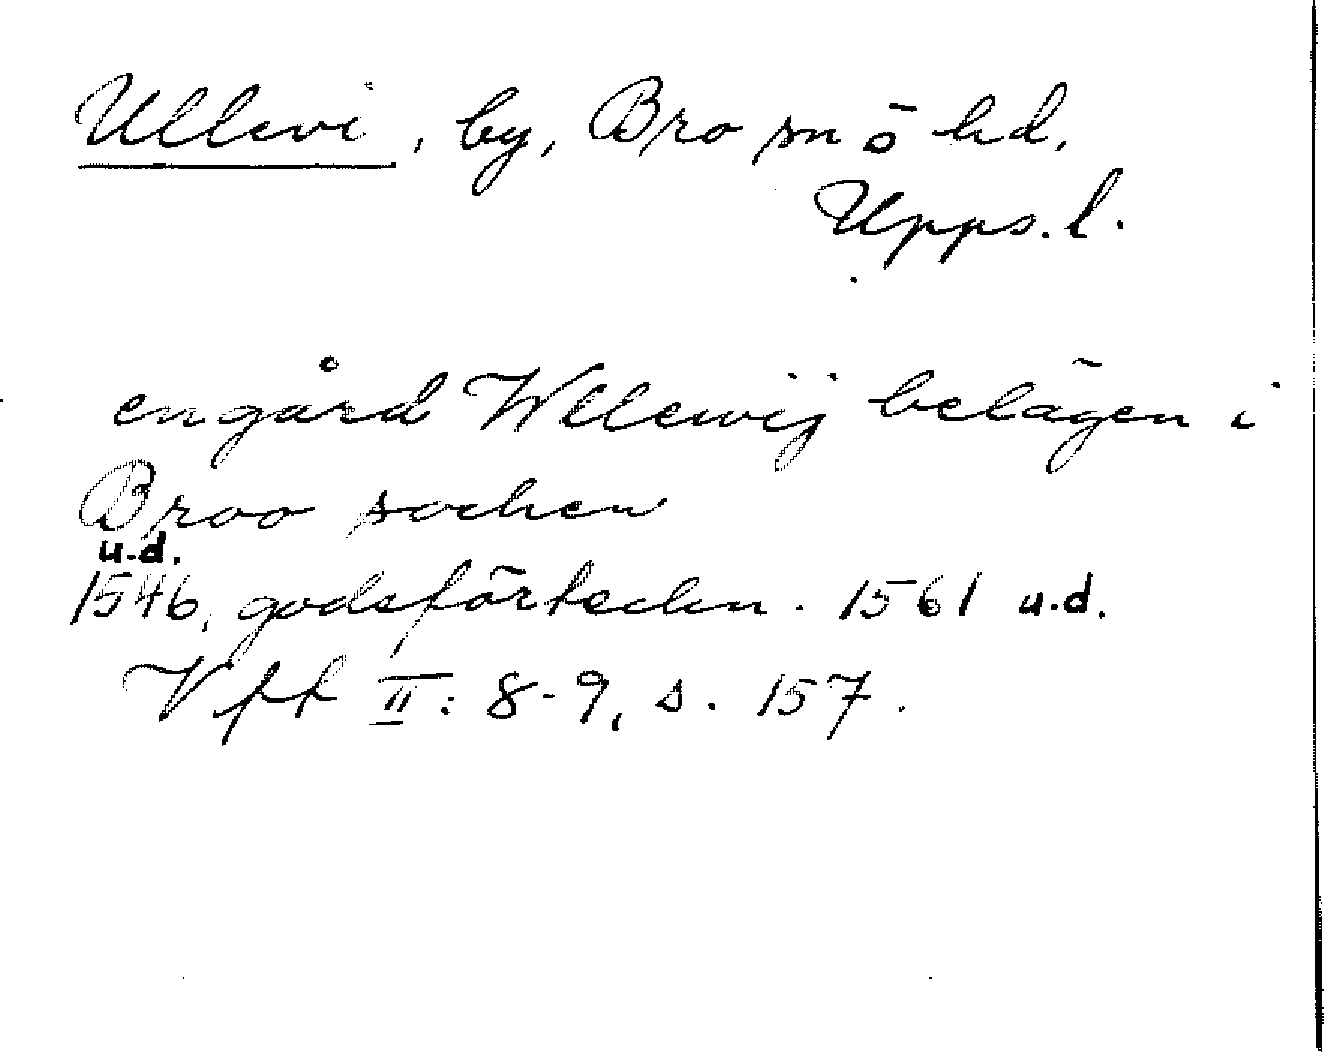 Ullevi, by, Bro sn o hd,
Upps. l.
en gård Wllewij belägen i
Broo sochen
u.d.
1546, godsförteckn. 1561 u.d.
Vft II: 8-9, s. 157.